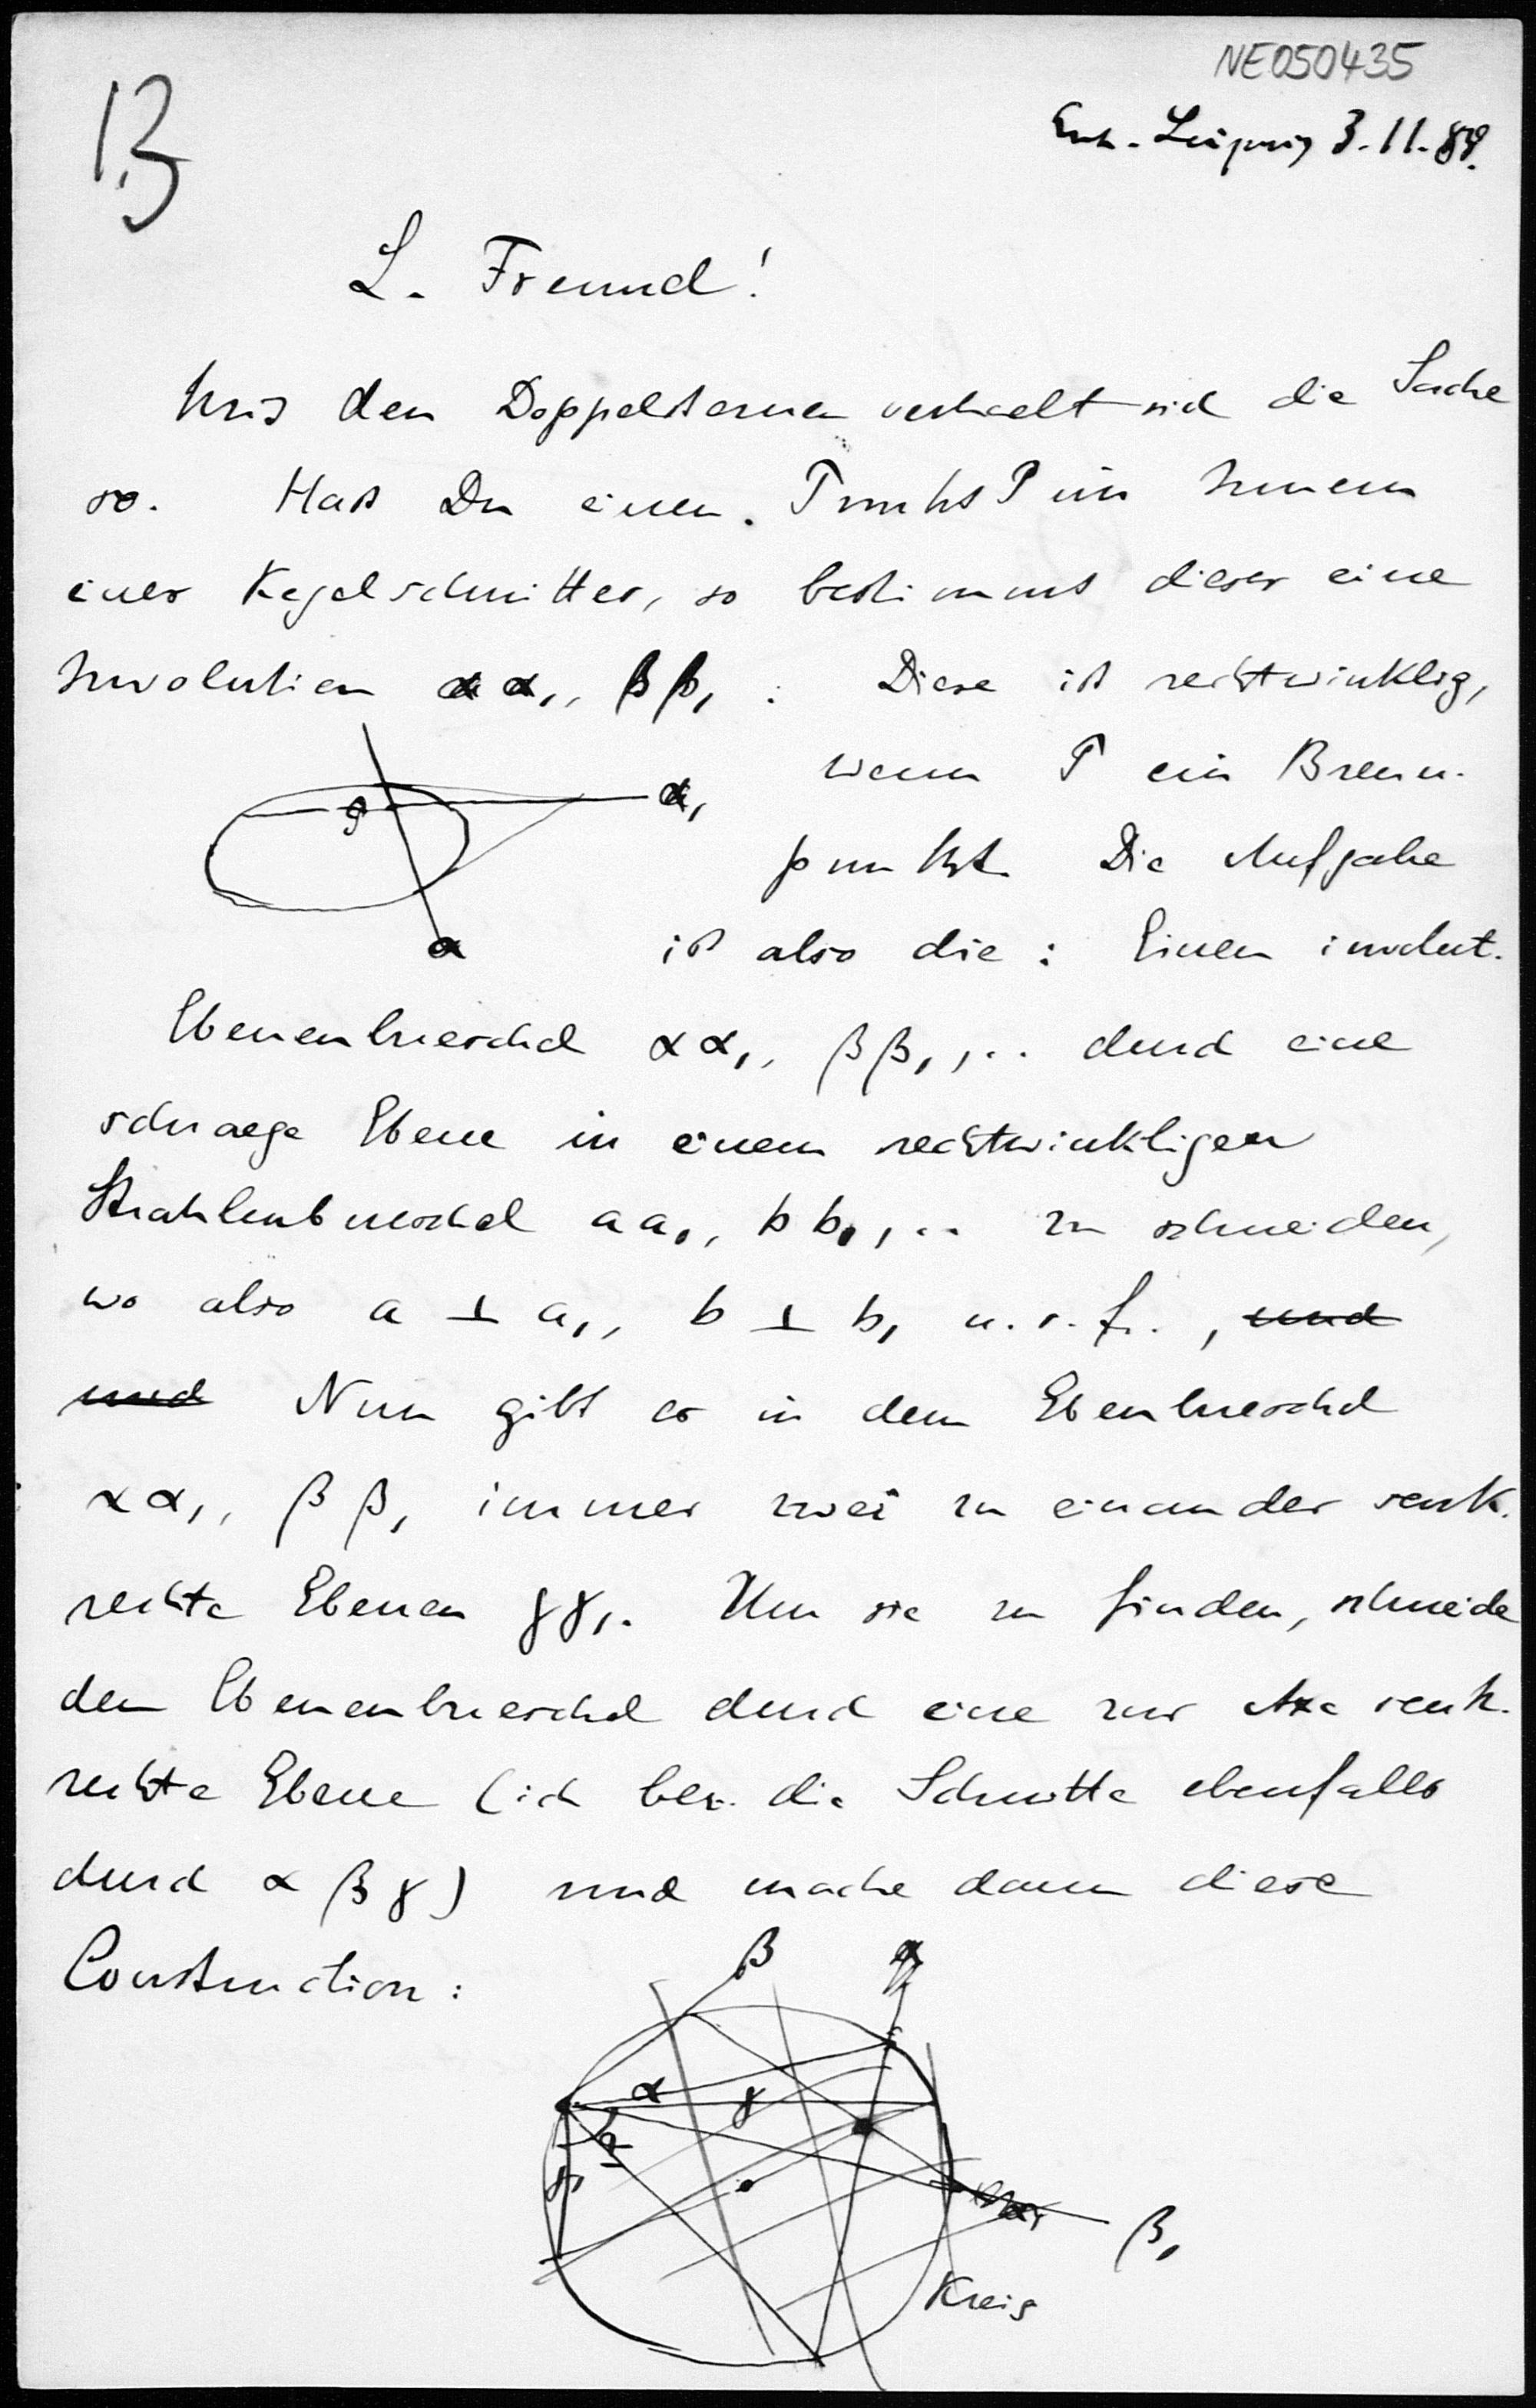 NE050435
13
Leipzig 3.11.89.
L. Freund!
Mit den Doppelsternen verhaelt sich die Sache
so. Hast Du einen Punkt P im Innern
eines Kegelschnittes, so bestimmt dieser eine
Involution α α₁, β β₁ : Diese ist rechtwinklig,
wenn P ein Brenn-
punkt. Die Aufgabe
ist also die: Einen involut.
P
α₁
α
Ebenenbueschel α α₁, β β₁, .. durch eine
schraege Ebene in einem rechtwinkligen
Strahlenbueschel a a₁, b b₁, .. zu schneiden,
wo also a ⊥ a₁, b ⊥ b₁ u.s.f., und
und Nun gibt es in dem Ebenbueschel
α α₁, β β₁ immer zwei zu einander senk-
rechte Ebenen γ γ₁. Um sie zu finden, schneide
den Ebenenbueschel durch eine zur Axe senk-
rechte Ebene (ich bez. die Schnitte ebenfalls
durch α β γ) und mache dann diese
Construction:
β
α
γ
γ₁
β₁
Kreis